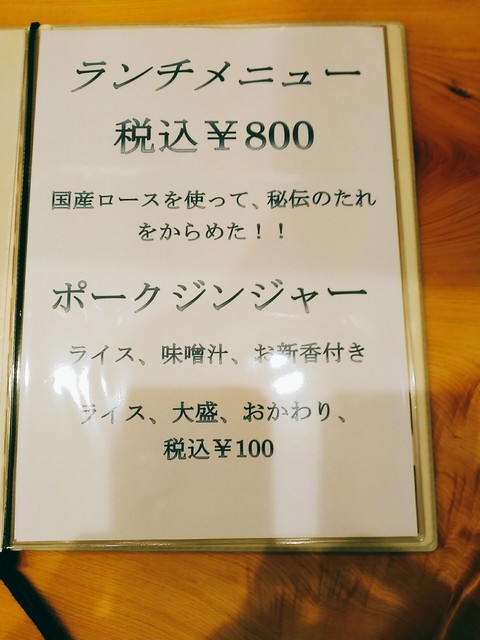 ランチメニュー
税込¥800
国産ロースを使って、秘伝のたれ
をからめた！！
ポークジンジャー
ライス、味噌汁、お新香付き
ライス、大盛、おかわり、
税込¥100